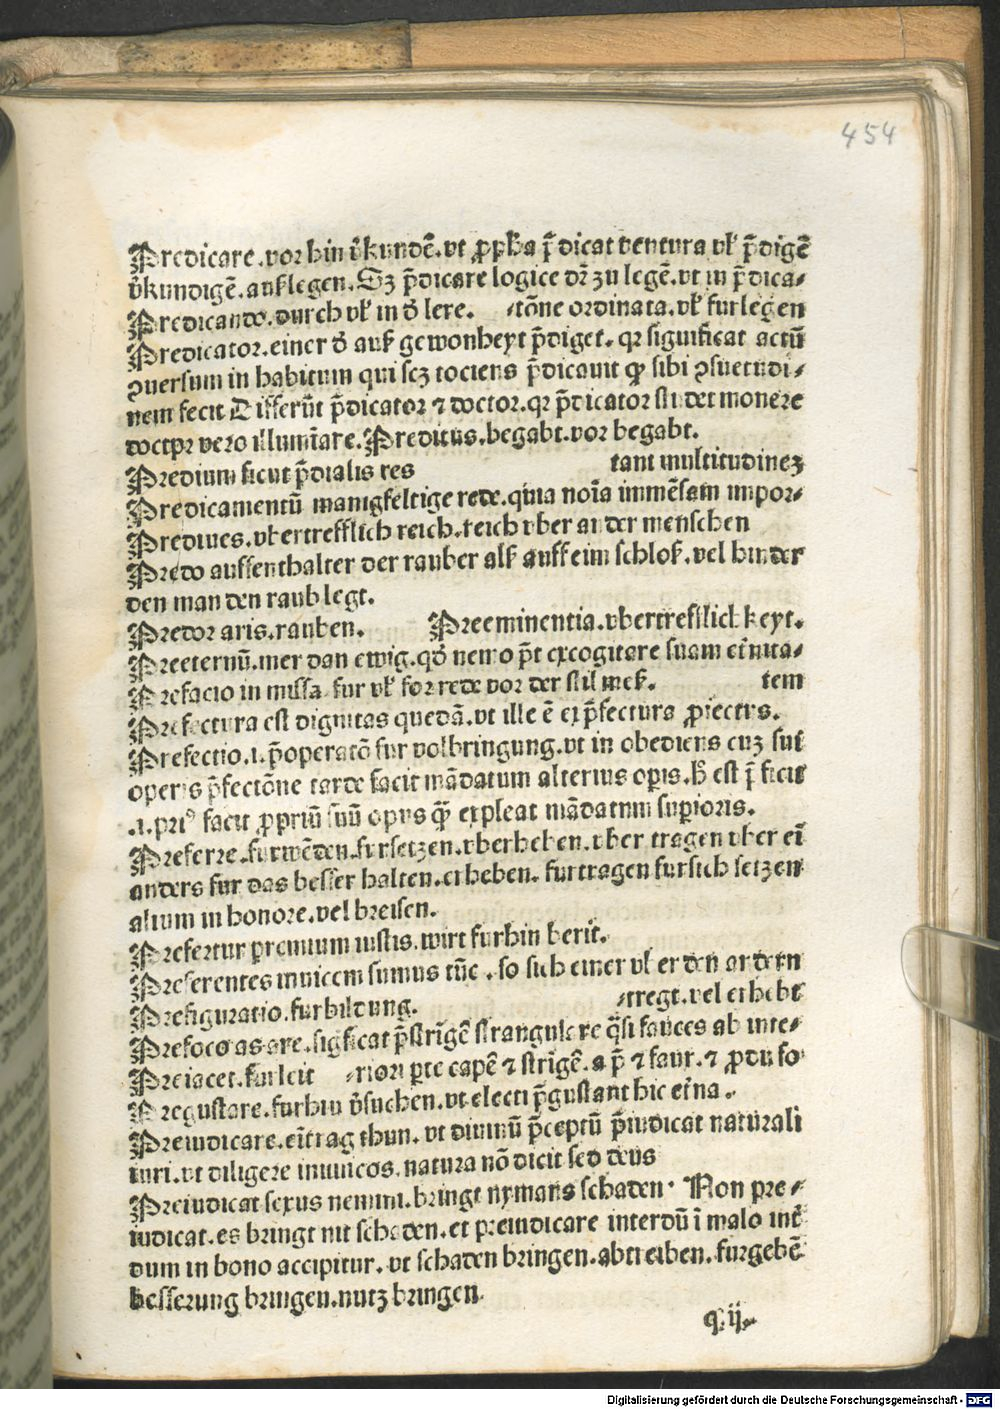 454
Predicare.vor hin v̓kundē.vt ꝓpħa p̄dicat ventura vł p̄digē
v̓kundigē.auſzlegen. Sꝫ p̄dicare logice dr̄ zu legē.vt in p̄dica-
Predicando.durch vł in d̓ lere. -tōne ordinata.vł furlegen
Predicator.einer d̓ auſz gewonheyt p̄diget. qꝛ significat actū
ꝯuersum in habitum qui scꝫ tociens p̄dicauit ꝙ sibi ꝯsuetudi-
nem fecit Differūt p̄dicator ⁊ doctor.qꝛ p̄dicator studet monere
doctor vero illumīare. Preditus.begabt.vor begabt.
Predium sicut p̄dialis res tant multitudineꝫ
Predicamentū manigfeltige rede.quia noīa immēsam impor-
Prediues.vbertrefflich reich.reich vber ander menschen
Predo auffenthalter der rauber alſz auff eim schloſz.vel hinder
den man den raub legt.
Predor aris.rauben. Preeminentia.vbertrefflich keyt.
Preeternū.mer dan ewig.qd̓ nemo pt̄ excogitare suam et̓nita-
Prefacio in missa fur vł for rede vor der stil meſz. tem
Prefectura est dignitas quedā.vt ille ē ex p̄fectura ꝓiectus.
Prefectio.i.p̄operatō fur volbringung.vt in obediens cuꝫ sui
operis p̄fectōne tarde facit mādatum alterius opis.ħ est p̄ficit
.i.priꝰ facit ꝓpriū suū opus ꝙ̄ expleat mādatum supioris.
Preferre.furwēden.fursetzen.vberheben.vber tragen vber eī
anders fur das besser halten.erheben.furtragen fursich setzen
alium in honore.vel breisen.
Prefertur premium iustis.wirt furhin berit.
Preferentes inuicem sumus tūc.so sich einer vł er den andern
Prefiguratio.furbildung. -tregt.vel erhebt
Prefoco as are.sigficat p̄strīgē strangulare q̄si fauces ab inte-
Preiacet.furleit -riori pte capē ⁊ strigē.a p̄ ⁊ faux.⁊ ꝓdu fo
Pregustare.furhin v̓suchen.vt electi p̄gustant hic et̓na.
Preiudicare.eītrag thun.vt diuinū p̄ceptū p̄iudicat naturali
iuri.vt diligere inimicos.natura nō dicit sed deus
Preiudicat sexus nemini.bringt nymans schaden. Non pre-
iudicat.es bringt nit schaden.et preiudicare interdū ī malo int̓
dum in bono accipitur.vt schaden bringen.abtreiben.furgebē
besserung bringen.nutz bringen
q.ij.
Digitalisierung gefördert durch die Deutsche Forschungsgemeinschaft - DFG